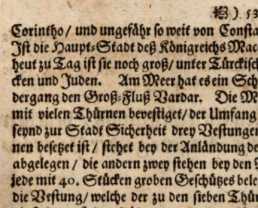 ) 53
Corintho/ und ungefähr so weit von Consta
Ist die Haupt-Stadt deß Königreichs Mac
heut zu Tag ist sie noch groß/ unter Türckisch
cken und Juden. Am Meer hat es ein Sch
dergang den Groß-Fluß Vardar. Die M
mit vielen Thürnen bevestiget/ der Umfang
seynd zur Stadt Sicherheit drey Vestungen
nen besetzet ist/ stehet bey der Anländung de
abgelegen/ die andern zwey stehen bey den
jede mit 40. Stücken groben Geschützes bele
die Vestung/ welche zu den sieben Thür